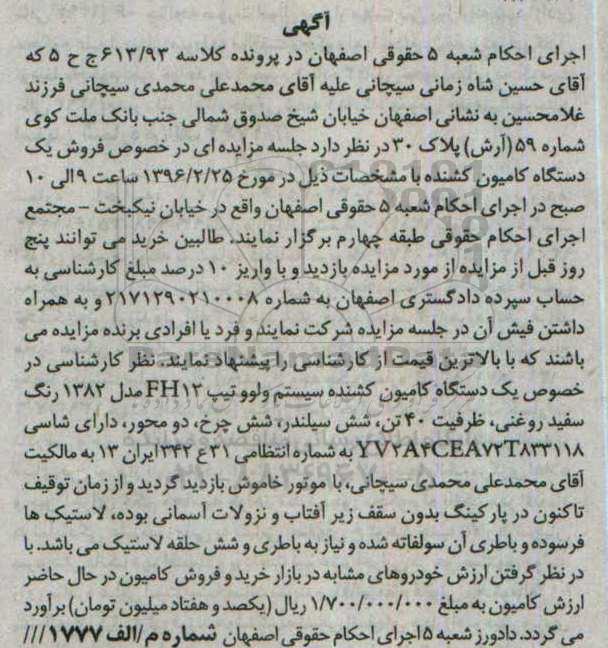 آگهی
اجرای احکام شعبه ۵ حقوقی اصفهان در پرونده کلاسه ۶۱۳/۹۳ ج ح ۵ که
آقای حسین شاه زمانی سیچانی علیه آقای محمدعلی محمدی سیچانی فرزند
غلامحسین به نشانی اصفهان خیابان شیخ صدوق شمالی جنب بانک ملت کوی
شماره ۵۹ (آرش) پلاک ۳۰ در نظر دارد جلسه مزایده ای در خصوص فروش یک
دستگاه کامیون کشنده با مشخصات ذیل در مورخ ۱۳۹۶/۲/۲۵ ساعت ۹ الی ۱۰
صبح در اجرای احکام شعبه ۵ حقوقی اصفهان واقع در خیابان نیکبخت – مجتمع
اجرای احکام حقوقی طبقه چهارم برگزار نمایند. طالبین خرید می توانند پنج
روز قبل از مزایده از مورد مزایده بازدید و با واریز ۱۰ درصد مبلغ کارشناسی به
حساب سپرده دادگستری اصفهان به شماره ۲۱۷۱۲۹۰۲۱۰۰۰۸ و به همراه
داشتن فیش آن در جلسه مزایده شرکت نمایند و فرد یا افرادی برنده مزایده می
باشند که با بالاترین قیمت از کارشناسی را پیشنهاد نمایند. نظر کارشناسی در
خصوص یک دستگاه کامیون کشنده سیستم ولوو تیپ FH۱۲ مدل ۱۳۸۲ رنگ
سفید روغنی، ظرفیت ۴۰ تن، شش سیلندر، شش چرخ، دو محور، دارای شاسی
YV۲A۴CEA۷۲T۸۳۳۱۱۸ به شماره انتظامی ۳۱ ع ۳۴۲ ایران ۱۳ به مالکیت
آقای محمدعلی محمدی سیچانی، با موتور خاموش بازدید گردید و از زمان توقیف
تاکنون در پارکینگ بدون سقف زیر آفتاب و نزولات آسمانی بوده، لاستیک ها
فرسوده و باطری آن سولفاته شده و نیاز به باطری و شش حلقه لاستیک می باشد. با
در نظر گرفتن ارزش خودروهای مشابه در بازار خرید و فروش کامیون در حال حاضر
ارزش کامیون به مبلغ ۱/۷۰۰/۰۰۰/۰۰۰ ریال (یکصد و هفتاد میلیون تومان) برآورد
می گردد. دادورز شعبه ۵ اجرای احکام حقوقی اصفهان شماره م/الف ۱۷۷۷ ///